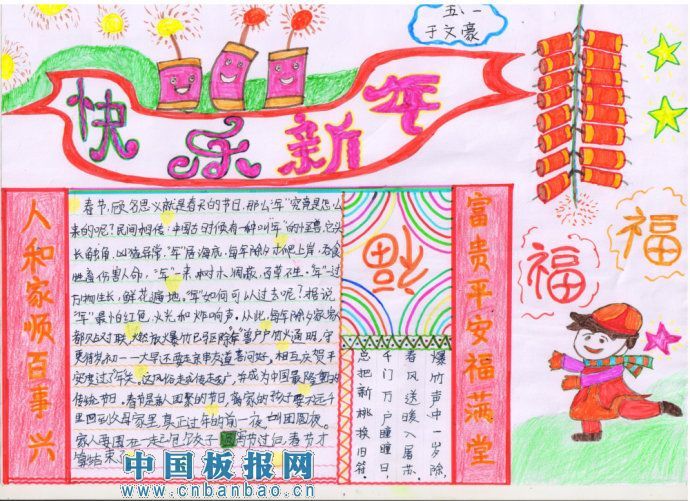 五、一
于文豪
快乐新年
人和家顺百事兴
春节,顾名思义就是春天的节日,那么"年"究竟是怎么
来的呢?民间相传,中国古时候有一种叫"年"的怪兽,它头
长角,凶猛异常,"年"居海底,每年除夕才爬上岸,吞食
牲畜伤害人命,"年"一来,树木凋敝,百草不生。"年"一过
万物生长,鲜花遍地。"年"如何可以过去呢?据说
"年"最怕红色、火光和炸响声。从此,每年除夕家家
都贴对联,燃放爆竹户户灯火通明,守
更待岁初一一大早还要走亲串友道喜问好,相互庆贺平
安度过了年关,这风俗越传越广,学成为中国最隆重的
传统节日。春节是亲人团聚的节日,离家的孩子要不远千
里回到父母家里真正过年的前一夜,叫团圆夜。
家人要围在一起包饺子
节过后,春节才
算结束了
福
爆竹声中一岁除,
春风送暖入屠苏。
千门万户曈曈日,
总把新桃换旧符。
富贵平安福满堂
福
福
中国板报网
www.cnbanbao.cn